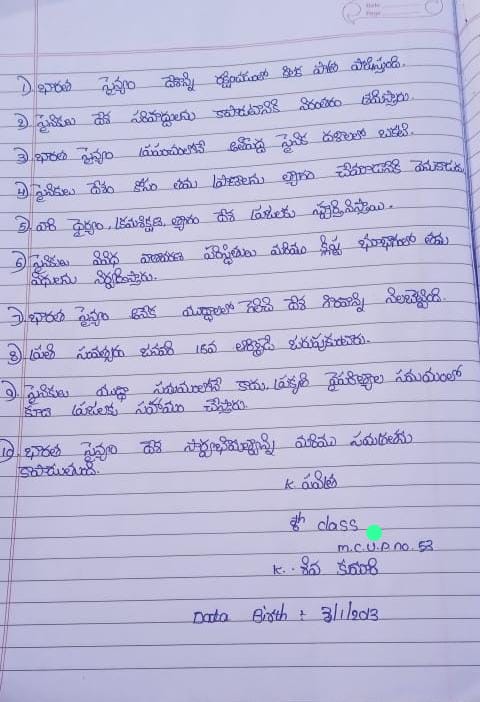 Date
Page
1) భారత సైన్యం దేశాన్ని రక్షించడంలో కీలక పాత్ర పోషిస్తుంది.
2) సైనికులు దేశ సరిహద్దులను కాపాడటానికి నిరంతరం శ్రమిస్తారు.
3) భారత సైన్యం ప్రపంచంలోనే అతిపెద్ద సైనిక దళాలలో ఒకటి.
4) సైనికులు దేశం కోసం తమ ప్రాణాలను త్యాగం చేయడానికి వెనుకాడరు.
5) వారి ధైర్యం, క్రమశిక్షణ, త్యాగం దేశ ప్రజలకు స్ఫూర్తినిస్తాయి.
6) సైనికులు వివిధ వాతావరణ పరిస్థితులు మరియు క్లిష్ట భూభాగంలో తమ
విధులను నిర్వహిస్తారు.
7) భారత సైన్యం అనేక యుద్ధాలలో గెలిచి దేశ గౌరవాన్ని నిలబెట్టింది.
8) ప్రతి సంవత్సరం జనవరి 15వ ఆర్మీడే జరుపుకుంటారు.
9) సైనికులు యుద్ధ సమయంలోనే కాదు, ప్రకృతి వైపరీత్యాల సమయంలో
కూడా ప్రజలకు సహాయం చేస్తారు.
10) భారత సైన్యం దేశ సార్వభౌమత్వాన్ని మరియు సమగ్రతను
కాపాడుతుంది.
K. పవిత్ర
8th class
M.C.U.P no. 53
K. శివ కుమారి
Data Birth : 3/1/2013